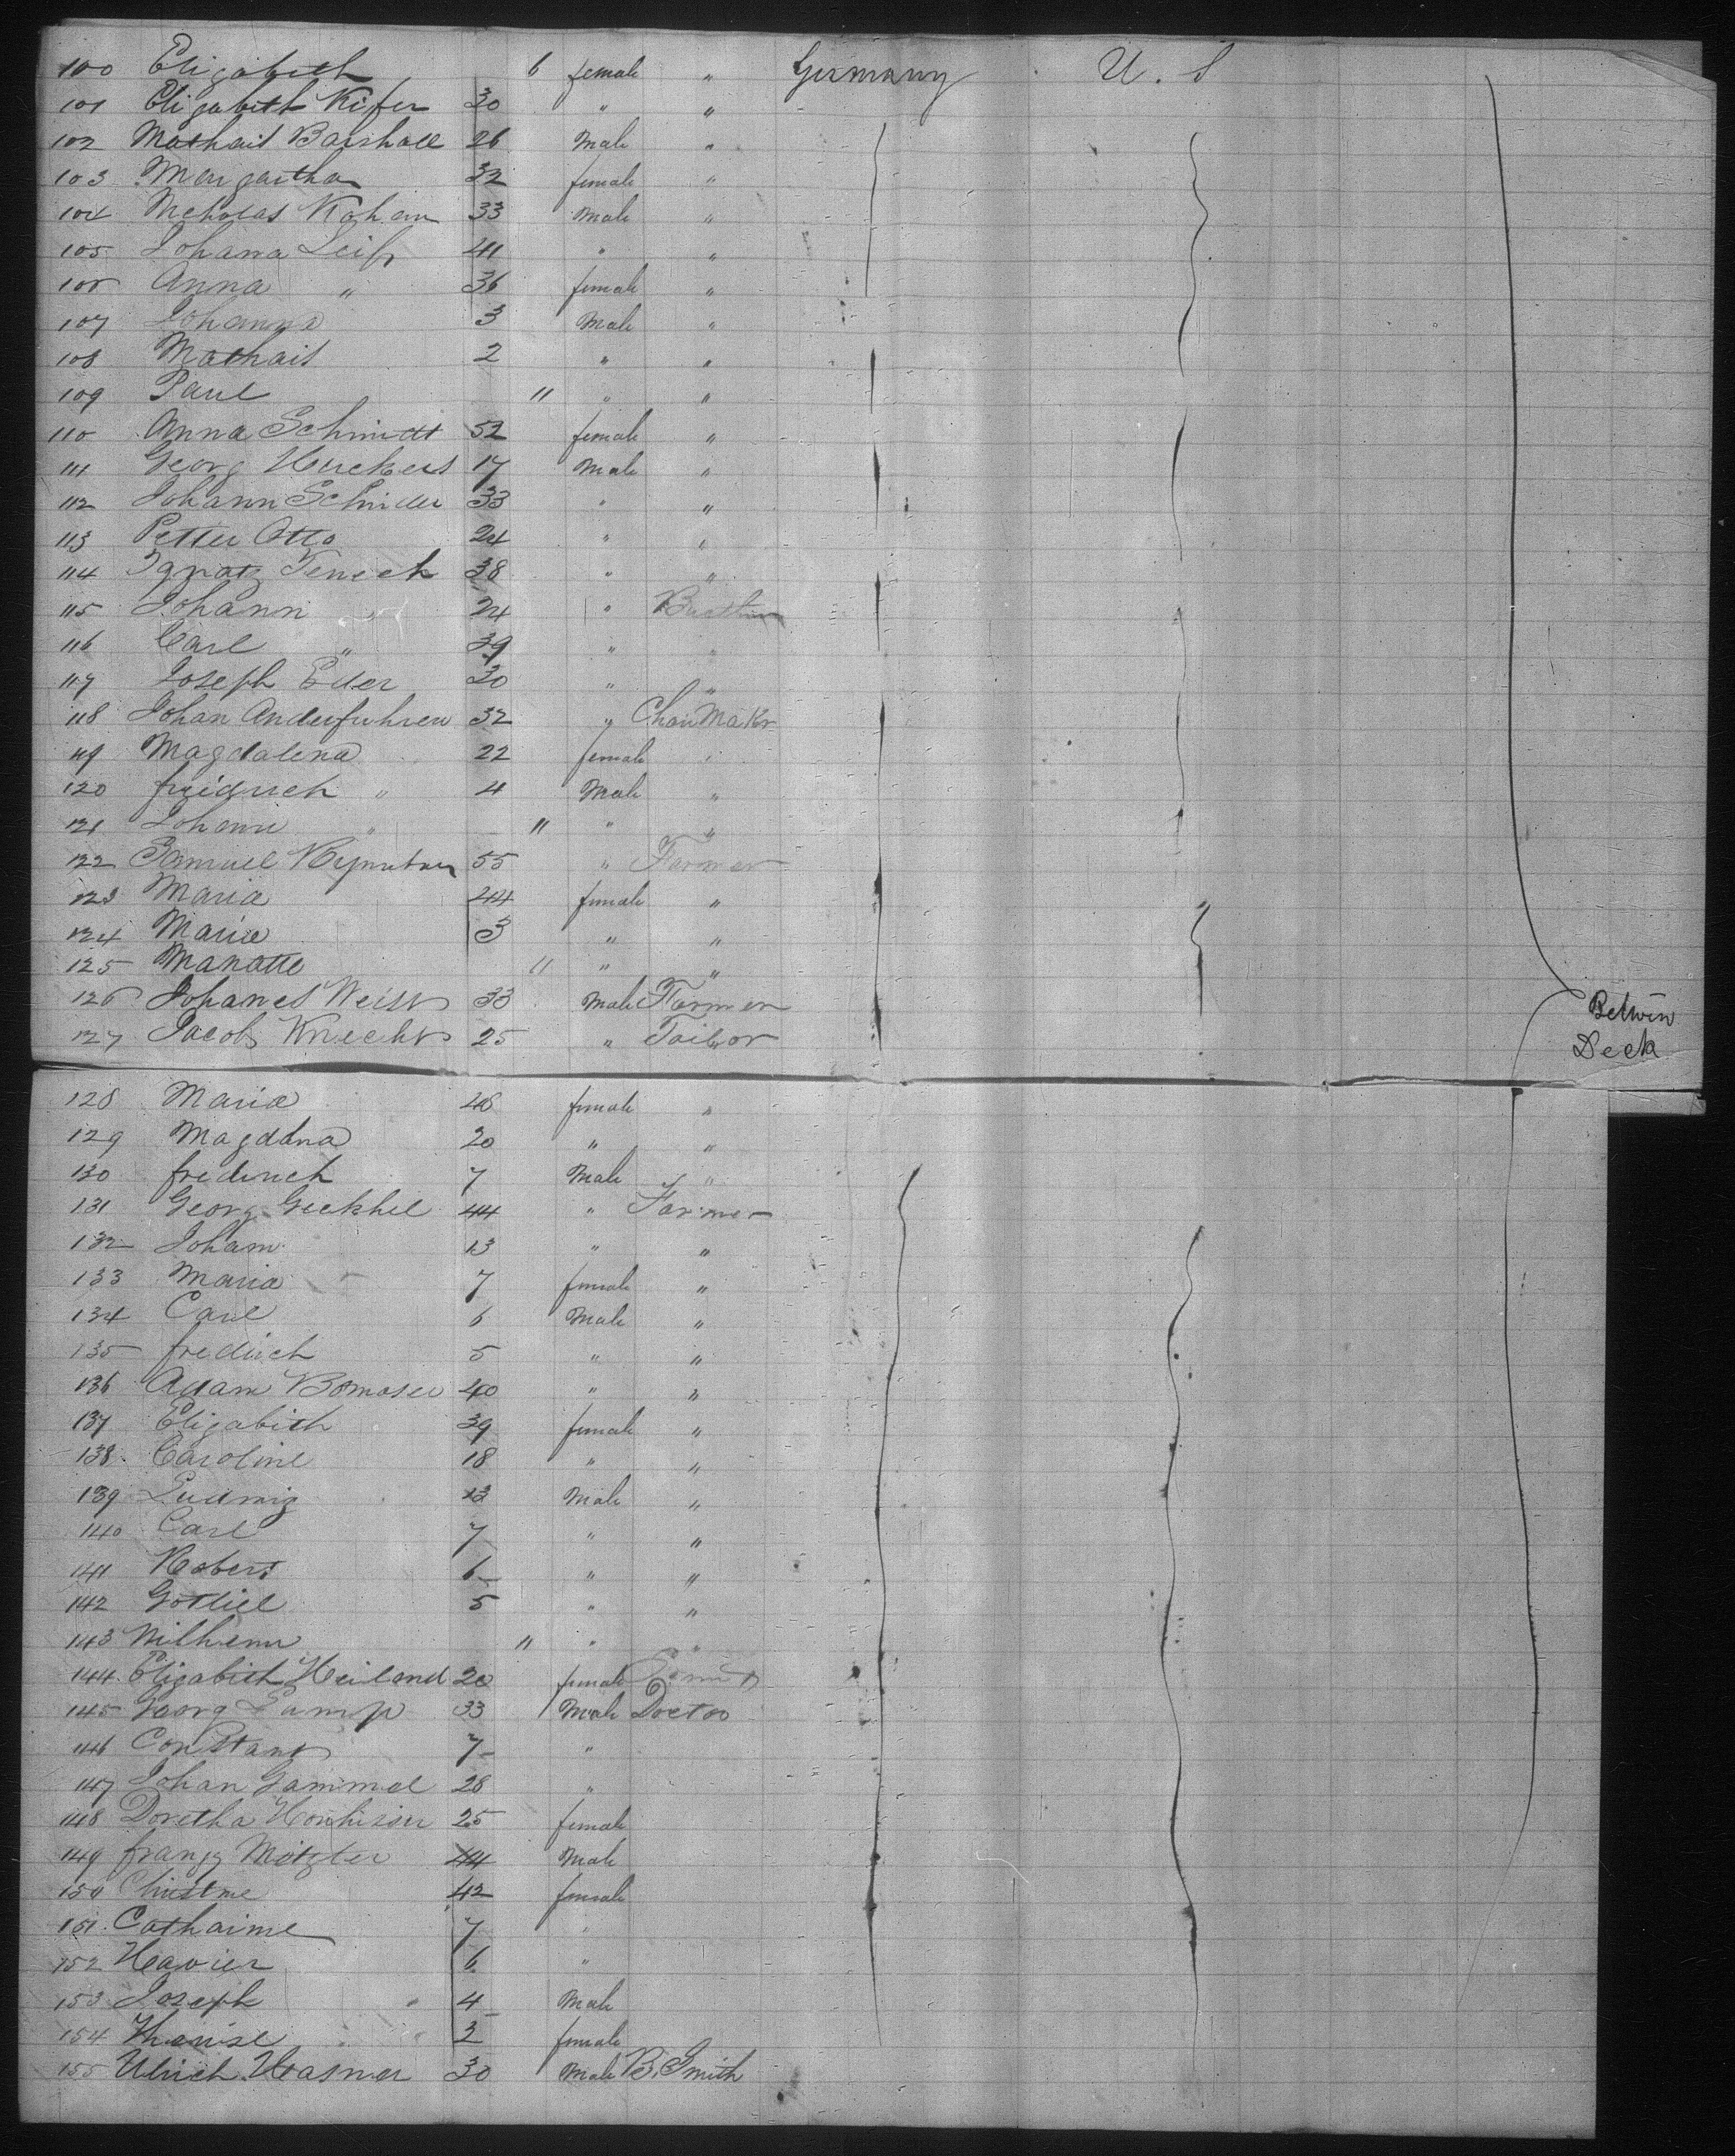 100 Elizabeth 6 female " Germany U. S
101 Elizabeth Kifer 30 " "
102 Mathais Barshall 26 Male "
103 Margaitha 32 female "
104 Nicholas Kohen 33 Male "
105 Johana Leify 41 " "
106 Anna " 36 female "
107 Johanna 3 Male "
108 Mathais 2 " "
109 Paul 11 " "
110 Anna Schmidt 52 female "
111 Georg Huckers 17 Male "
112 Johann Schnider 33 " "
113 Petter Otto 24 " "
114 Ignatz Tenech 38 " "
115 Johann " 24 "
116 Carl " 39 " "
117 Joseph Eder 30 " "
118 Johan Anderfuhren 32 " Chair Makr
119 Magdalena 22 female "
120 fridrich " 4 Male "
121 Johann " 11 " "
122 Samuel 55 " Farmer
123 Maria 44 female "
124 Maria 3 " "
125 Manatte 11 " "
126 Johanes Weiss 33 Male Farmer Betwin
127 Jacob Knecht 25 " Tailor Deck
128 Maria 48 female "
129 Magdlna 20 " "
130 fredirich 7 Male "
131 Georg Geckhel 44 " Farmer
132 Joham 13 " "
133 Maria 7 female "
134 Carl 6 Male "
135 fredirich 5 " "
136 Adam Bomoser 40 " "
137 Elizabith 39 female "
138 Caroline 18 " "
139 Ludwig 13 Male "
140 Carl 7 " "
141 Robert 6 " "
142 Gotliel 5 " "
143 Wilhem 11 " "
144 Elizabith Heiland 20 female
145 Georg Lamp 33 Male Doctor
146 Constant 7 "
147 Johan Gammel 28 "
148 Doretha 25 female
149 franz Mitzler 44 Male
150 Christine 42 female
151 Catharine 7 "
152 Xavier 6 "
153 Joseph " 4 Male
154 Therise " 3 female
155 Ulrich Hasner 30 Male B. Smith